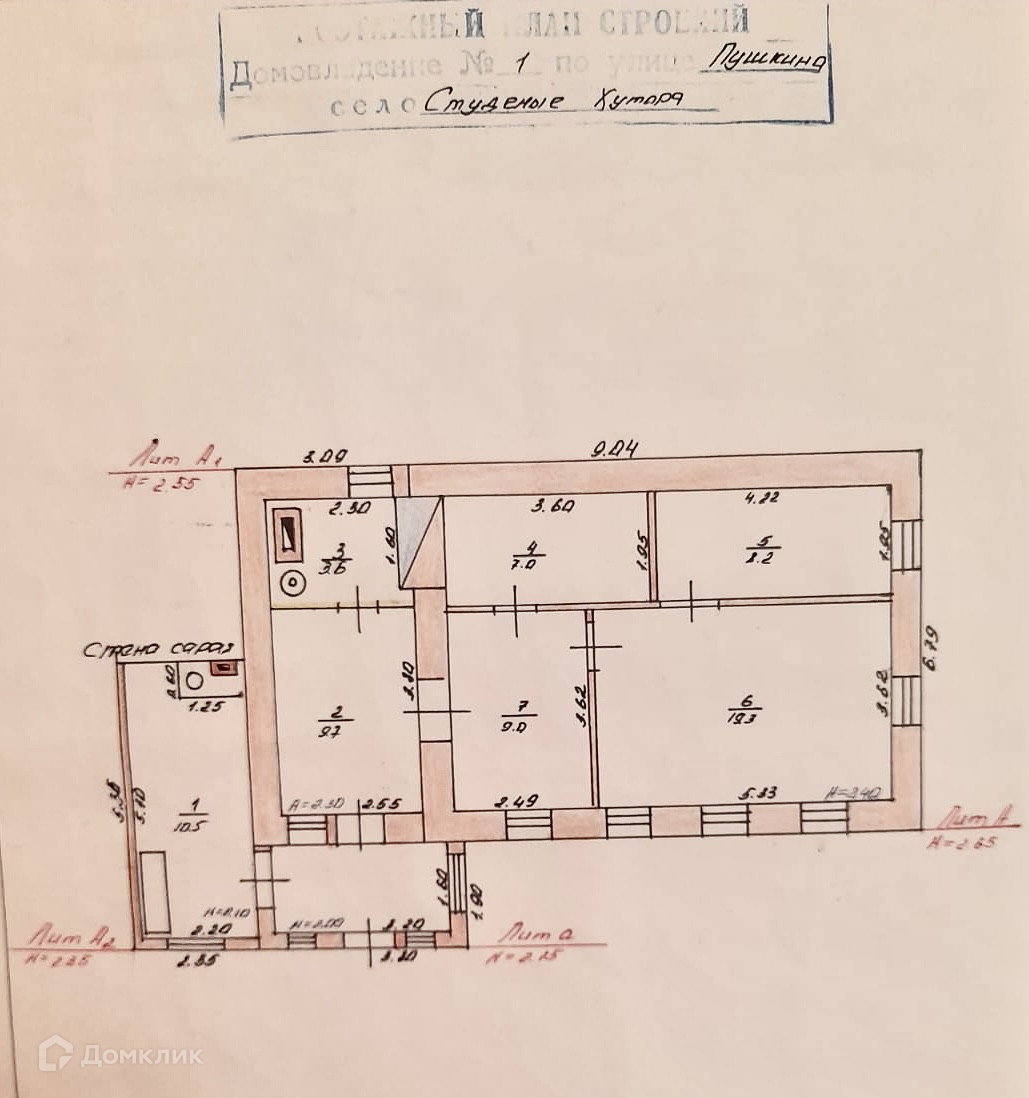 ПОЭТАЖНЫЙ ПЛАН СТРОЕНИЙ
Домовладение № 1 по улице Пушкина
село Студеные Хутора
Лит А1
H=2.55
3.09
9.04
2.30
3.60
4.22
1.60
1.95
1.95
3
3.6
4
7.0
5
8.2
Стена сарая
0.60
1.25
3.80
3.62
3.62
6.79
2
9.7
7
9.0
6
19.3
5.35
5.10
1
10.5
H=2.30
2.55
2.49
5.33
H=2.40
Лит А
H=2.65
1.60
1.90
H=2.10
2.20
H=2.00
3.20
Лит А2
H=2.35
2.35
3.20
Лит а
H=2.25
Домклик